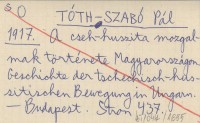 O TÓTH-SZABÓ Pál
1917. A cseh-huszita mozgal-
mak története Magyarországon.
Geschichte der tschechisch-hus-
sitischen Bewegung in Ungarn.
— Budapest. Str. 437.